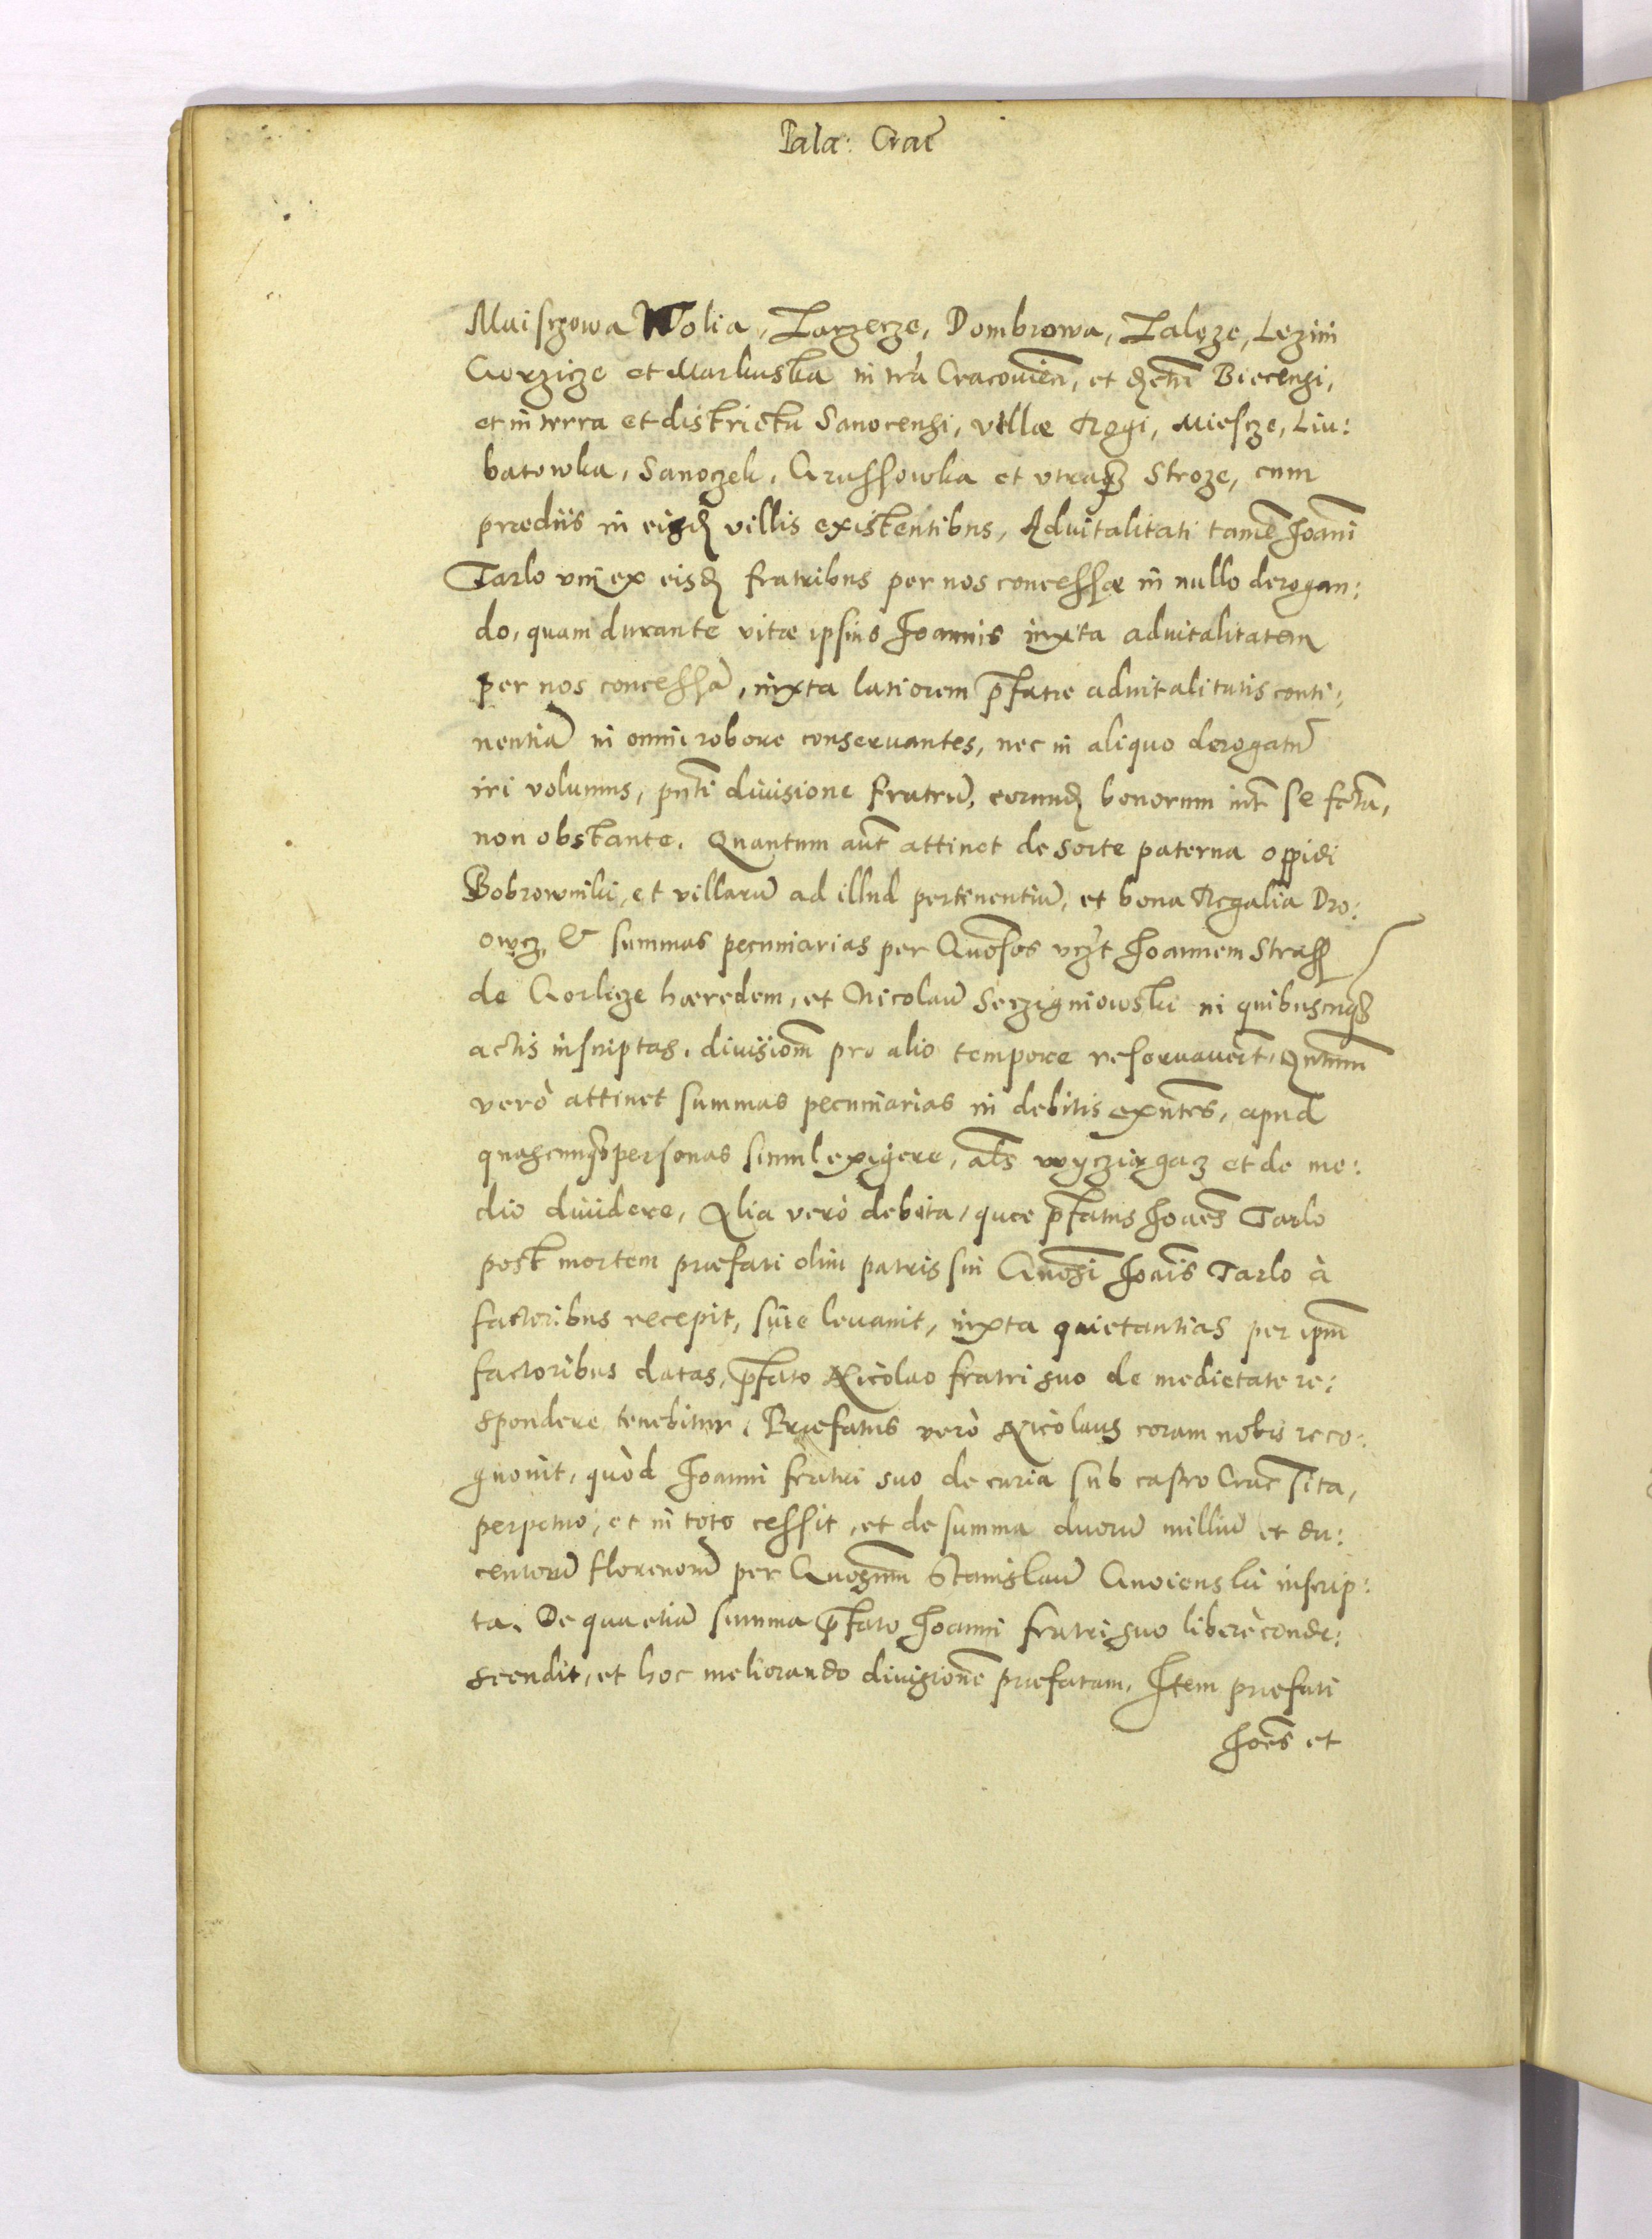 Pala: Crac̃
Maiſczowa Wolia, Zarzecze, Dombrowa, Zalęze, Lezini
Gorzicze et Markuska in tr̃a Cracouieñ, et Biecensi,
et in terra et districtu Sanocensi, villæ Rogi, Mieſcze, Liu:
batowka, Sanoczek, Gruſſowka et vtraqȝ Stroze, cum
prædiis in eisdē villis existentibus, Aduitalitati tamē Joanni
Tarlo vni ex eisdē fratribus per nos conceſſæ in nullo derogan:
do, quam durante vitæ ipsius Joannis iuxta aduitalitatem
per nos conceſſā, iuxta latiorem p̃fatæ aduitalitatis conti:
nentiā in omni robore conseruantes, nec in aliquo derogatū
iri volumus, pñti diuisione fratrū, eorundē bonorum int̃ se fcta,
non obstante. Quantum aut̃ attinet de sorte paterna oppidi
Bobrowniki, et villarū ad illud pertinentiū, et bona Regalia Dro:
owcz, & summas pecuniarias per Gñosos vcȝt Joannem Straſſ
de Gorlicze hæredem, et Nicolaū Seczigniowski in quibuscuqȝ
actis inscriptas, diuisiom̃ pro alio tempore reseruauert̃, Qntum
verò attinet summas pecuniarias in debitis exñtes, apud
quascunqȝ personas simul exigere, als̃ wycziągacz et de me:
dio diuidere, Alia verò debita, quæ p̃fatus Joaes̃ Tarlo
post mortem præfati olim patris sui Gñosi Joais̃ Tarlo à
factoribus recepit, siue leuauit, iuxta quietantias per ipm̃
factoribus datas, p̃fato Nicolao fratri suo de medietate re:
spondere tenebitur. Præfatus verò Nicolaus coram nobis reco:
gnouit, quòd Joanni fratri suo de curia sub castro Crac̃ sita,
perpetuo, et in toto ceſſit, et de summa duorū milliū et du:
centorū florenorū per Gnosum̃ Stanislaū Gnoienski inscrip:
ta. De qua etiā summa p̃fato Joanni fratri suo liberè conde:
scendit, et hoc meliorando diuisionē præfatam. Item præfati
Joes̃ et